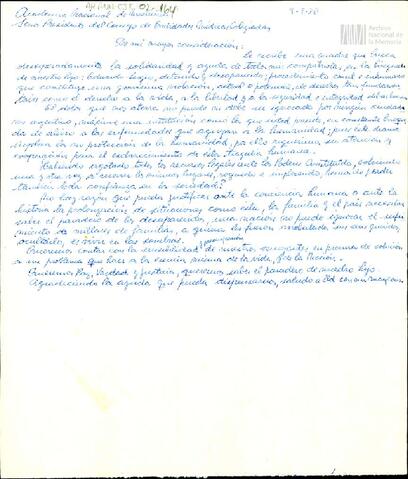 Academia Nacional de
Señor Presidente del Consejo de Entidades
9-5-80
Archivo
Nacional de
la Memoria
De mi mayor consideración:
Le escribe una madre que busca
desesperadamente la solidaridad y ayuda de todos mis compatriotas, en la búsqueda
de nuestro hijo: Eduardo detenido y desaparecido, procedimiento cruel e inhumano
que constituye una gravísima violación, de derechos tan fundamen-
tales como el derecho a la vida, a la libertad y a la seguridad e integridad del ser humano
El dolor que nos aterra no puede ni debe ser ignorado por ningún ciuda-
no argentino, máxime una institución como la que usted preside, en constante búsque-
da de alivio a las enfermedades que agravan a la humanidad; pero este drama
de la humanidad, por ello requerimos su atención y
cooperación para el esclarecimiento de esta tragedia humana.
Habiendo agotado todos los recursos legales ante los Poderes Constituídos, volvemos
una y otra vez a recorrer los mismos lugares, rogando e implorando, hemos de perder
también toda confianza en la sociedad?
No hay razón que pueda justificar ante la conciencia humana o ante la
historia la prolongación de situaciones como esta, la familia y el país necesitan
saber el paradero de los desaparecidos, una nación no puede ignorar el sufri-
miento de millares de familias, a quienes les fueron arrebatados sus seres queridos,
ocultarlo, es vivir en las sombras.
Queremos contar con la sensibilidad de nuestros en procura de solución
a un problema que hace a la esencia misma de la vida, y de la Nación.
Queremos Paz, Verdad y Justicia, queremos saber el paradero de nuestro hijo
Agradeciendo la ayuda que pueda dispensarnos, saludo a Ud con mi mayor con